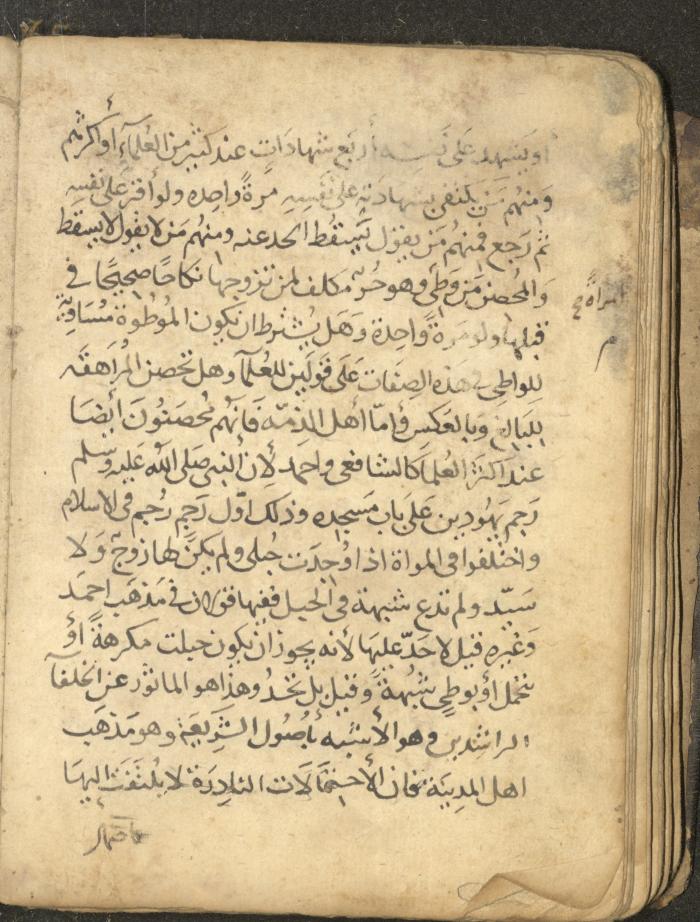 أو يشهد على نفسه أربع شهادات عند كثير من العلماء أو أكثرهم
ومنهم من يكتفي بشهادته على نفسه مرة واحده ولو أقر على نفسه
ثم رجع فمنهم من يقول يسقط الحد عنه ومنهم من لا يقول لا يسقط
والمحصن من وطئ وهو حر مكلف لمن تزوجها نكاحا صحيحا في
امرأة صح
قبلها ولو مرة واحدة وهل يشترط ان تكون الموطوة مساوية
للواطي في هذه الصفات على قولين للعلما وهل تحصن المراهقه
للبالغ وبالعكس فأما أهل الذمه فانهم محصنون أيضا
عند اكثر العلما كالشافعي واحمد لأن النبي صلى الله عليه وسلم
رجم يهوديين على باب مسجده وذلك أول رجم رجم في الاسلام
واختلفوا في المراة اذا وجدت حبلى ولم يكن لها زوج ولا
سيد ولم تدع شبهة في الحبل ففيها قولان في مذهب احمد
وغيره قيل لا حد عليها لأنه يجوز ان يكون حبلت مكرهة أو
بتحمل أو بوطي شبهة وقيل بل تحد وهذا هو الماثور عن الخلفآ
الراشدين وهو الأشبه بأصول الشريعة وهو مذهب
اهل المدينة فان الاحتمالات النادرة لا يلتفت اليها